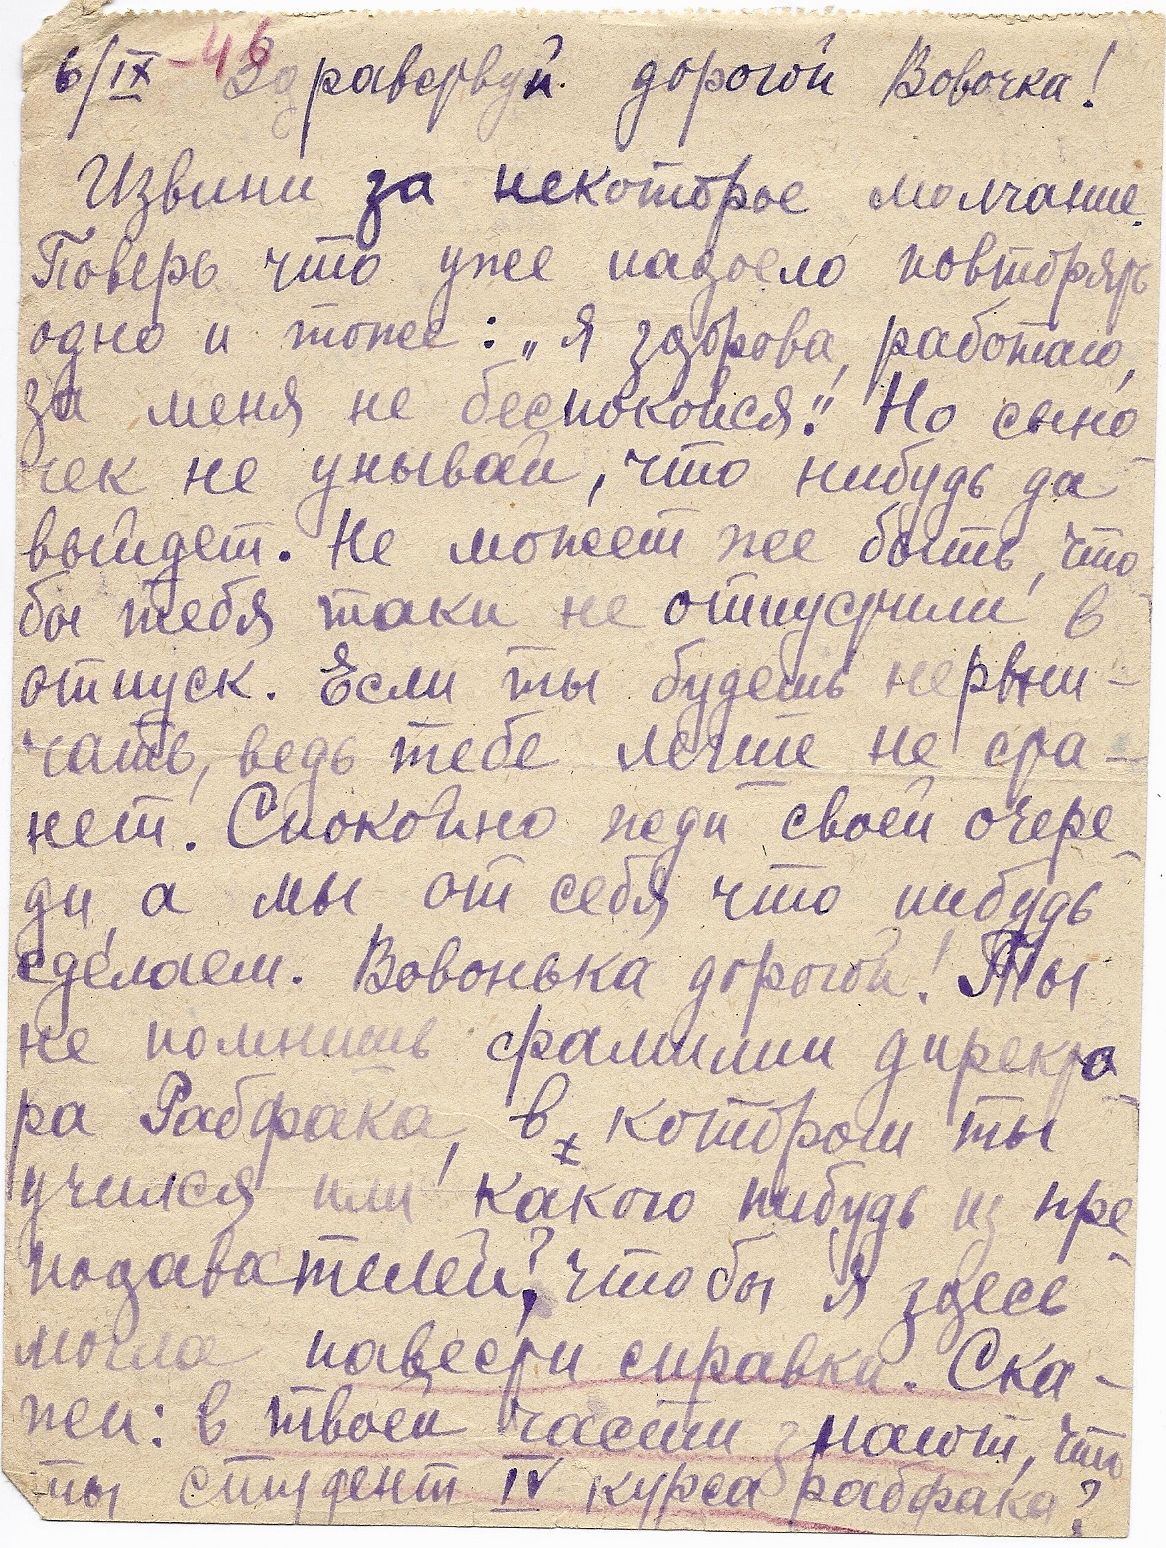 6/IX-46 Здравствуй дорогой Вовочка!
Извини за некоторое молчание.
Поверь что уже надоело повторять
одно и тоже: „я здорова, работаю,
за меня не беспокойся“! Но сыно
чек не унывай, что нибудь да
выйдет. Не может же быть, что
бы тебя таки не отпустили в
отпуск. Если ты будешь нервни-
чать, ведь тебе легче не ста-
нет. Спокойно жди своей очере-
ди, а мы от себя что нибудь
сделаем. Вовонька дорогой! Ты
не помнишь фамилии директо
ра Рабфака, в котором ты
учился или какого нибудь из пре
подавателей?, чтобы я здесь
могла навести справки. Ска-
жи: в твоей части знают, что
ты студент IV курса рабфака?